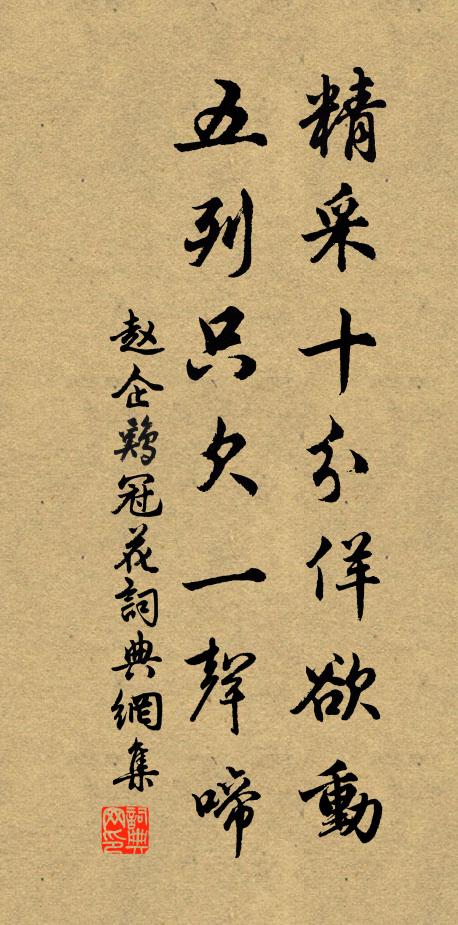 精采十分佯欲動
五列只欠一聲啼
赵企鷄冠花詞典網集
詞典网印